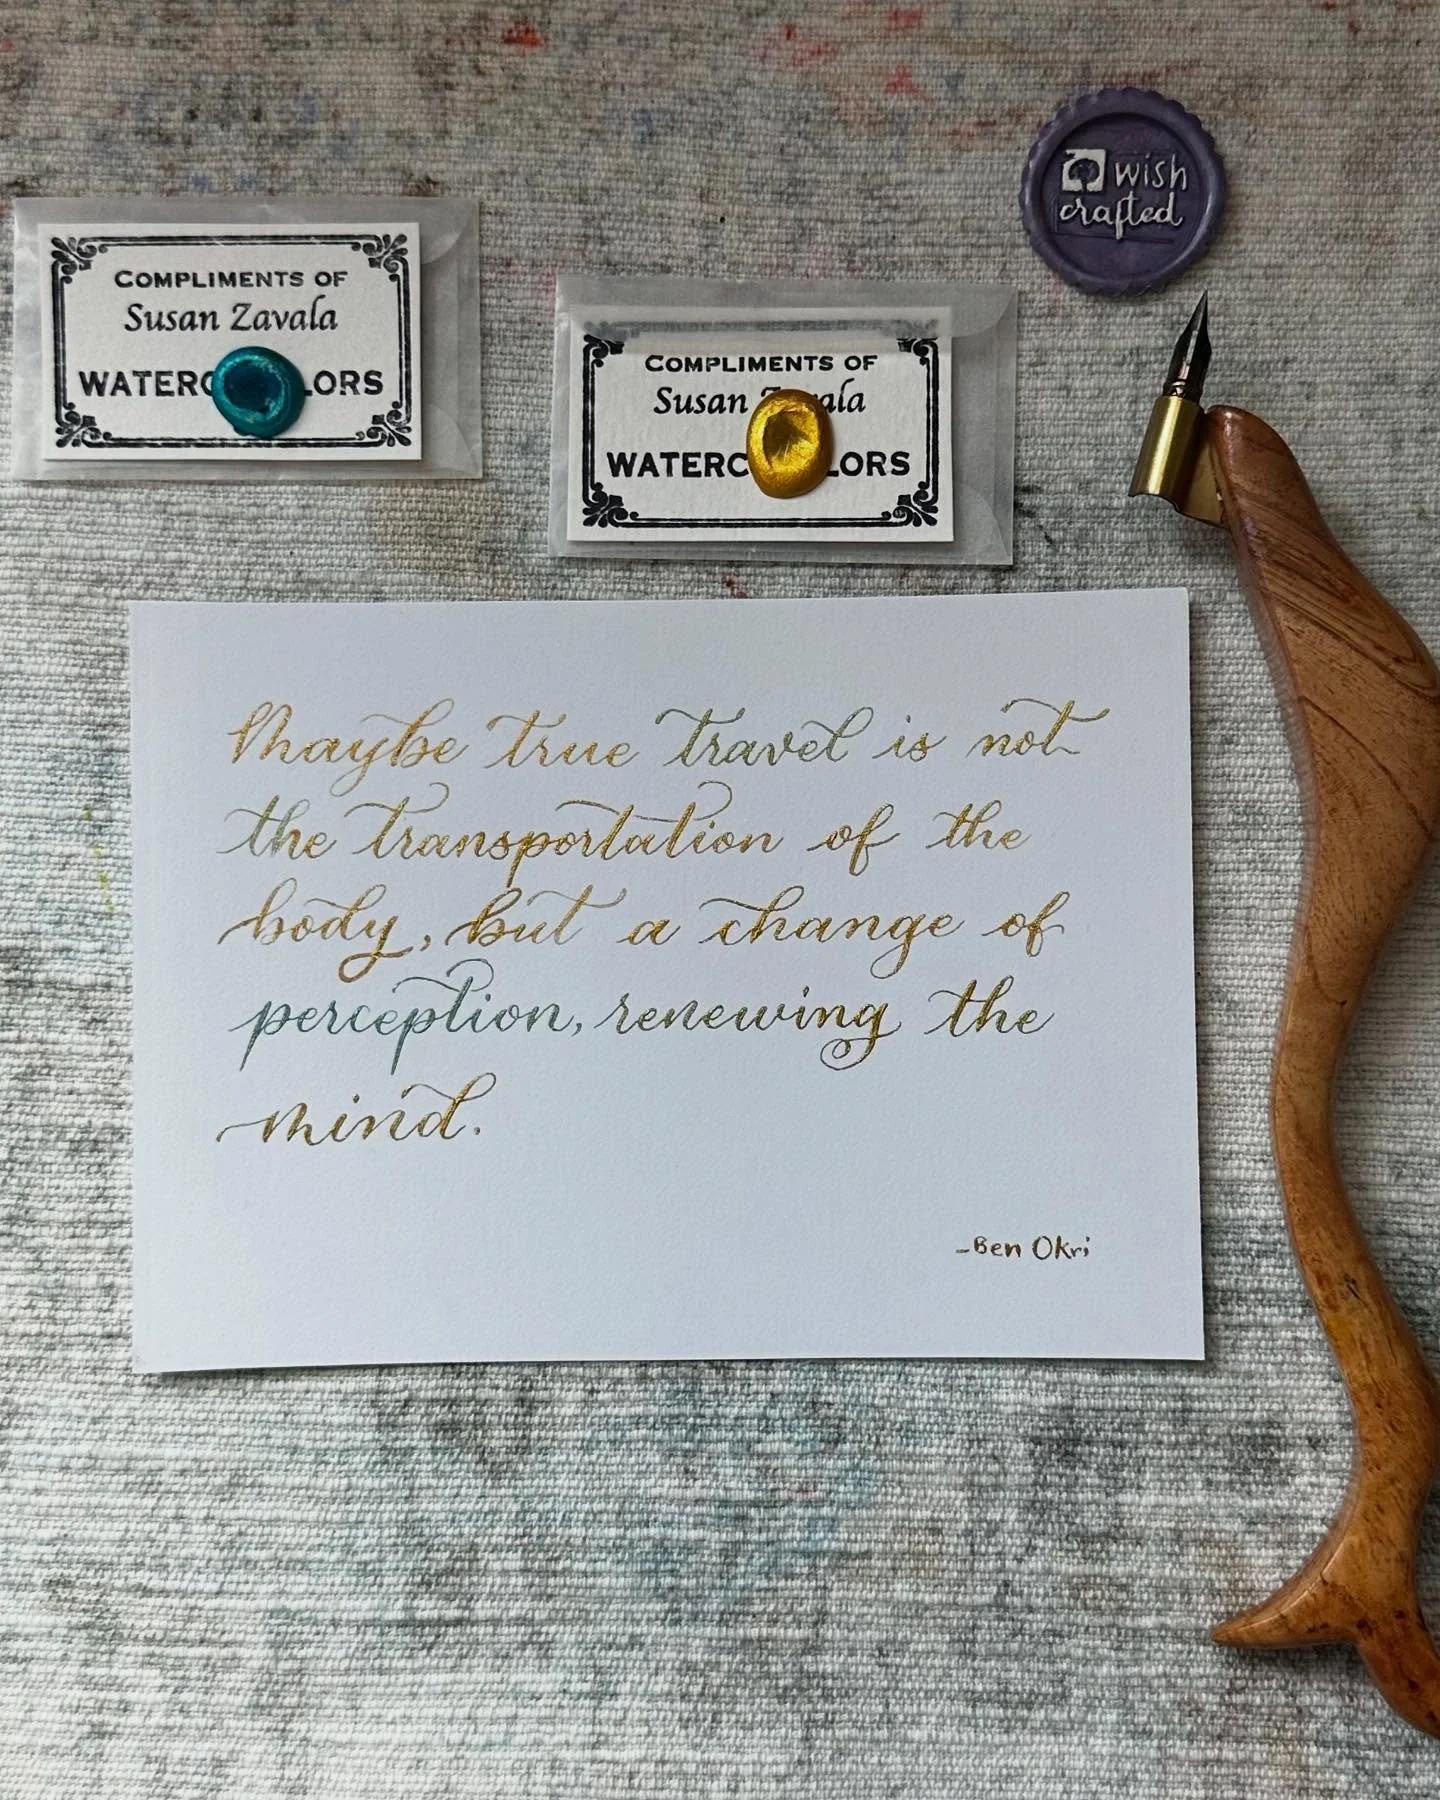 wish
crafted
COMPLIMENTS OF
Susan Zavala
WATERC LORS
COMPLIMENTS OF
Susan Z ala
WATERC LORS
Maybe true travel is not
the transportation of the
body, but a change of
perception, renewing the
mind.
-Ben Okri